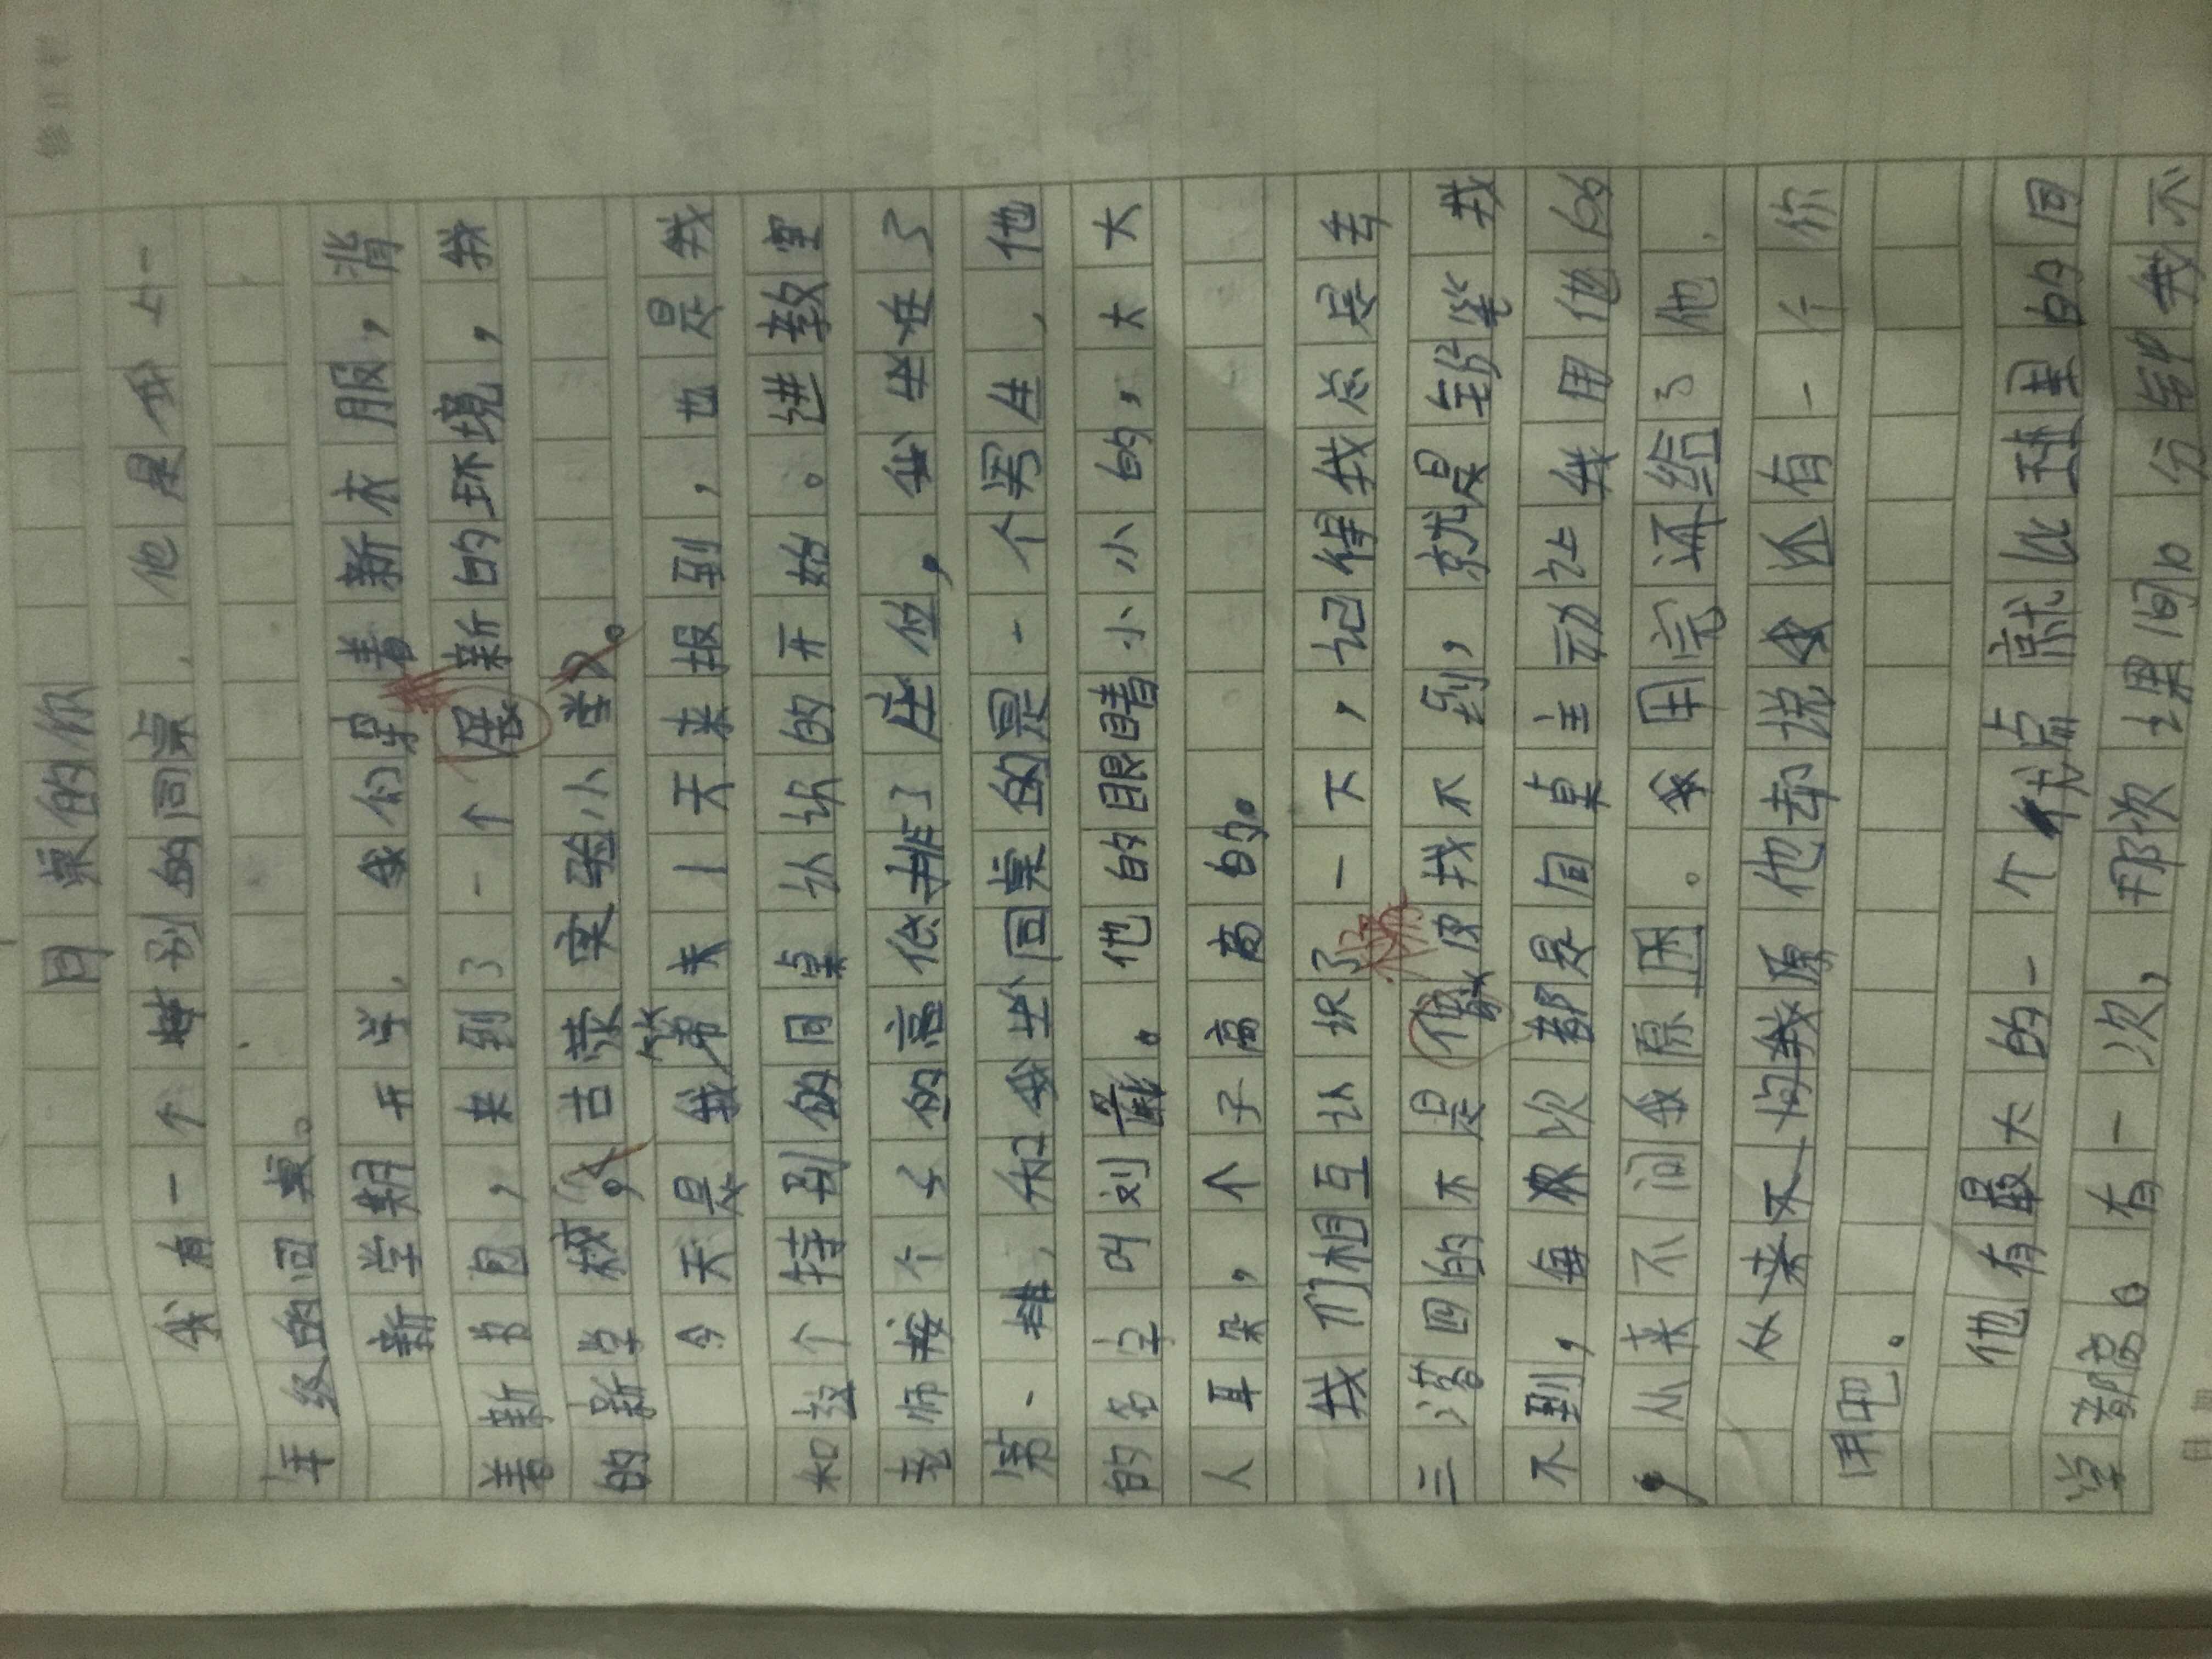 同桌的你
我有一个特别的同桌，他是我上一
年级的同桌。
新学期开学，我们穿着新衣服，背
着新书包，来到了一个展新的环境，我
的新学校。古荥实验小学。
今天是我第一天来报到，也是我
和这个特别的同桌认识的开始。进教室
老师按个子的高低排了座位，我坐在了
第一排，和我坐同桌的是一个男生，他
的名字叫刘。他的眼睛小小的，大大
人耳朵，个子高高的。
我们相互认识了一下，记得我总是丢
三落四的不是橡皮找不到，就是铅笔找
不到，每次都是同桌主动让我用他的
，从来不问我原因。我用完还给了他，
从来不问我原他却说我还有一个你
用吧。
他有最大的一个优点就比班里的同
学都高。有一次，那次课间10分钟我不